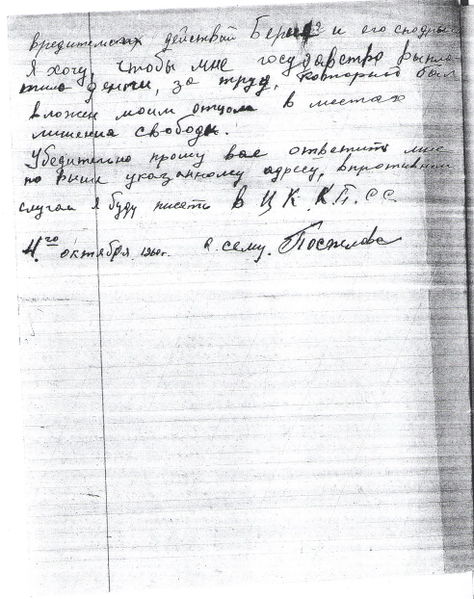 вредительских действий Берия и его сподручн
Я хочу, чтобы мне государство выпла
тило деньги, за труд, который был
вложен моим отцом в местах
лишения свободы.
Убедительно прошу вас ответить мне
по выше указанному адресу, впротивном
случаи я буду писать в Ц К. К.П. С С.
4го октября 1960г. к сему.